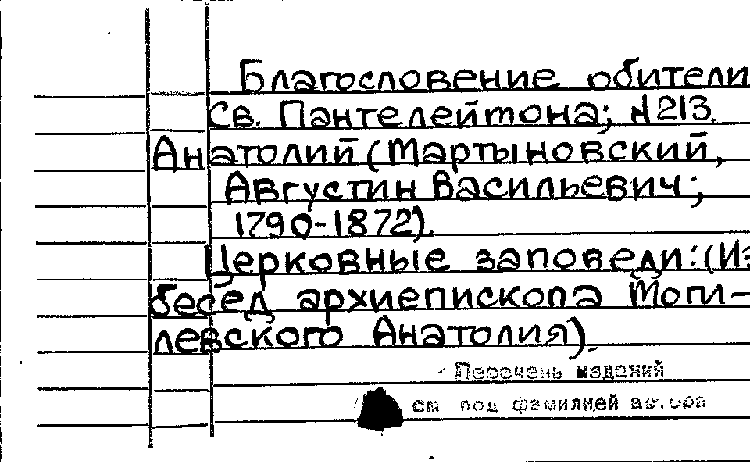 Благословение обители
Св. Пантелеймона; №213.
Анатолий (Мартыновский,
Августин Васильевич;
1790-1872).
Церковные заповеди: (Из
бесед архиепископа Моги-
левского Анатолия).
Перечень изданий
см под фамилией автора